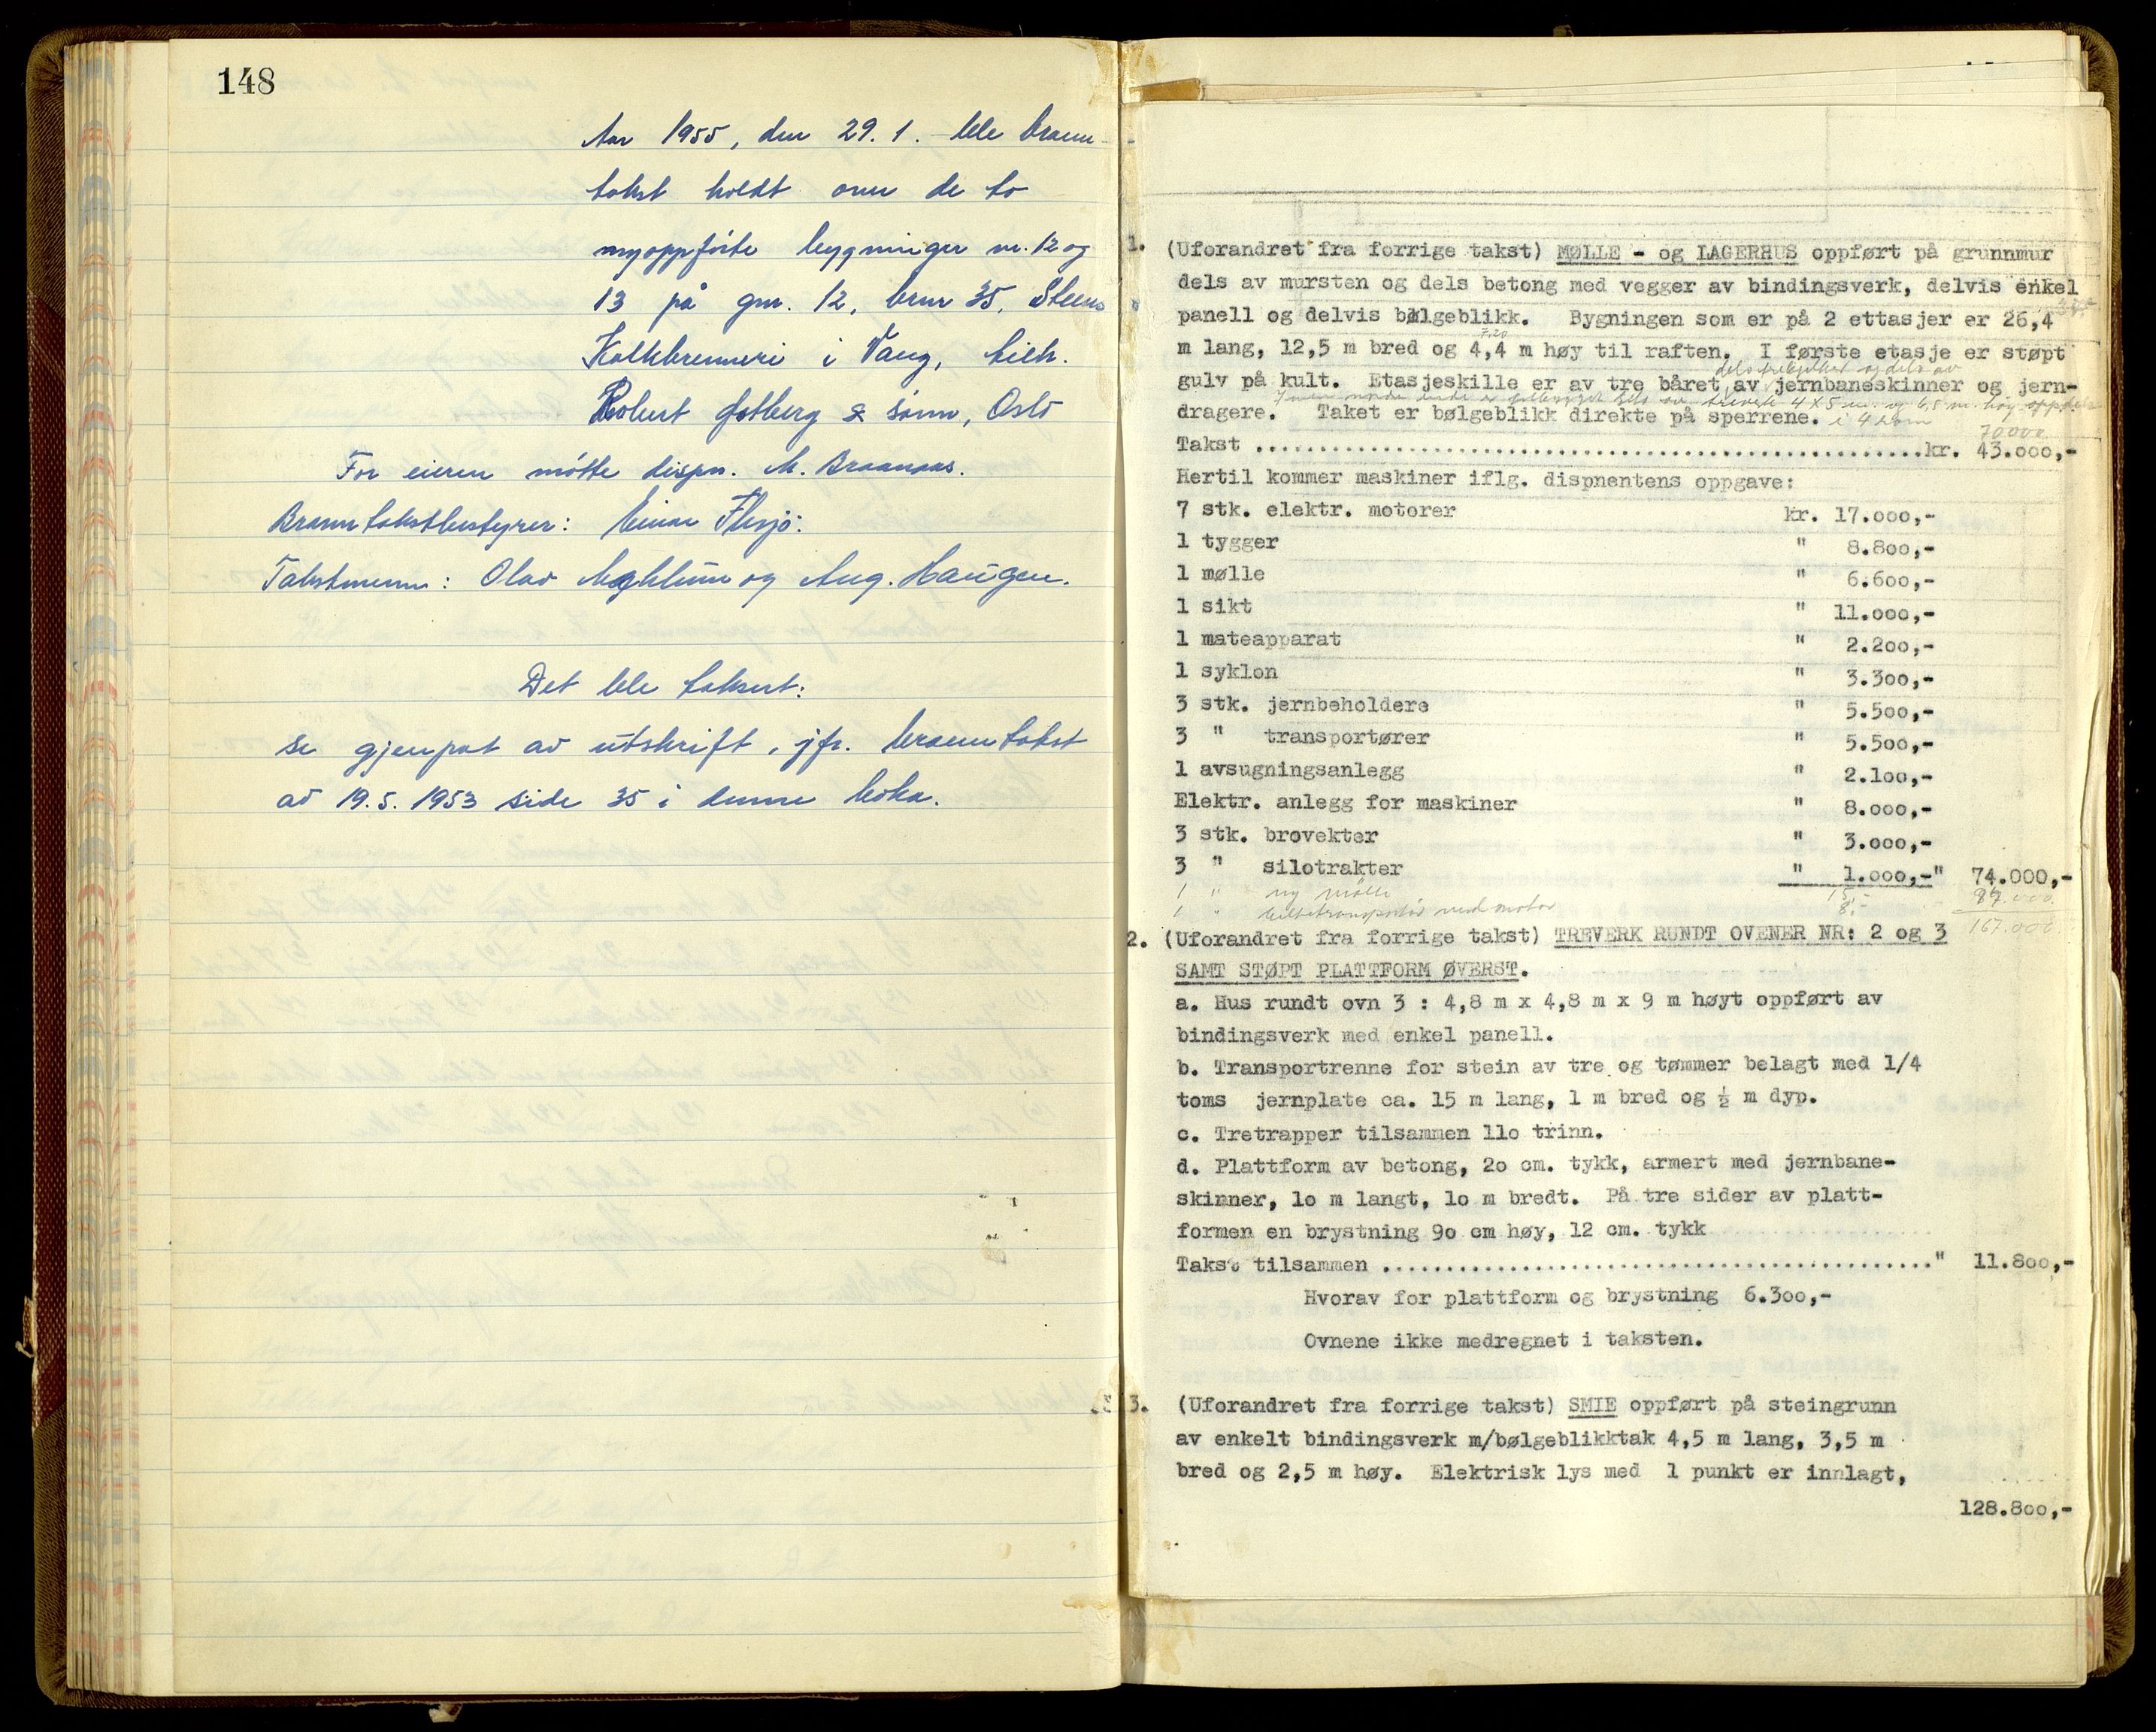 148
Aar 1955, den 29. 1. ble brann-
takst holdt over de to
nyoppførte bygninger nr. 12 og
13 på gnr. 12, bnr 35, Steens
Kalkbrenneri i Vang, tilh.
Robert Gotberg & sønn, Oslo
For eieren møtte dispn. M. Braanaas.
Branntakstbestyrer: Einar Flesjø.
Takstmenn: Olav Mæhlum og Aug. Haugen.
Det ble taksert:
se gjenpat av utskrift, jfr. branntakst
av 19.5. 1953 side 35 i denne boka.
1. (Uforandret fra forrige takst) MØLLE - og LAGERHUS oppført på grunnmur
dels av mursten og dels betong med vegger av bindingsverk, delvis enkel
panell og delvis bølgeblikk. Bygningen som er på 2 ettasjer er 26,4
7,20
m lang, 12,5 m bred og 4,4 m høy til raften. I første etasje er støpt
gulv på kult. Etasjeskille er av tre båret av jernbaneskinner og jern-
dragere. Taket er bølgeblikk direkte på sperrene. i 4 rom
70000
Takst ....................................................kr. 43.000,-
Hertil kommer maskiner iflg. dispnentens oppgave:
7 stk. elektr. motorer kr. 17.000,-
1 tygger " 8.800,-
1 mølle " 6.600,-
1 sikt " 11.000,-
1 mateapparat " 2.200,-
1 syklon " 3.300,-
3 stk. jernbeholdere " 5.500,-
3 " transportører " 5.500,-
1 avsugningsanlegg " 2.100,-
Elektr. anlegg for maskiner " 8.000,-
3 stk. brovekter " 3.000,-
3 " silotrakter " 1.000,-" 74.000,-
1 " ny mølle 15,-
1 " beltetransportør med motor 8,- 97.000
167.000
2. (Uforandret fra forrige takst) TREVERK RUNDT OVENER NR: 2 og 3
SAMT STØPT PLATTFORM ØVERST.
a. Hus rundt ovn 3 : 4,8 m x 4,8 m x 9 m høyt oppført av
bindingsverk med enkel panell.
b. Transportrenne for stein av tre og tømmer belagt med 1/4
toms jernplate ca. 15 m lang, 1 m bred og ½ m dyp.
c. Tretrapper tilsammen 110 trinn.
d. Plattform av betong, 20 cm. tykk, armert med jernbane-
skinner, 10 m langt, 10 m bredt. På tre sider av platt-
formen en brystning 90 cm høy, 12 cm. tykk
Takst tilsammen ..........................................." 11.800,-
Hvorav for plattform og brystning 6.300,-
Ovnene ikke medregnet i taksten.
3. (Uforandret fra forrige takst) SMIE oppført på steingrunn
av enkelt bindingsverk m/bølgeblikktak 4,5 m lang, 3,5 m
bred og 2,5 m høy. Elektrisk lys med 1 punkt er innlagt,
128.800,-